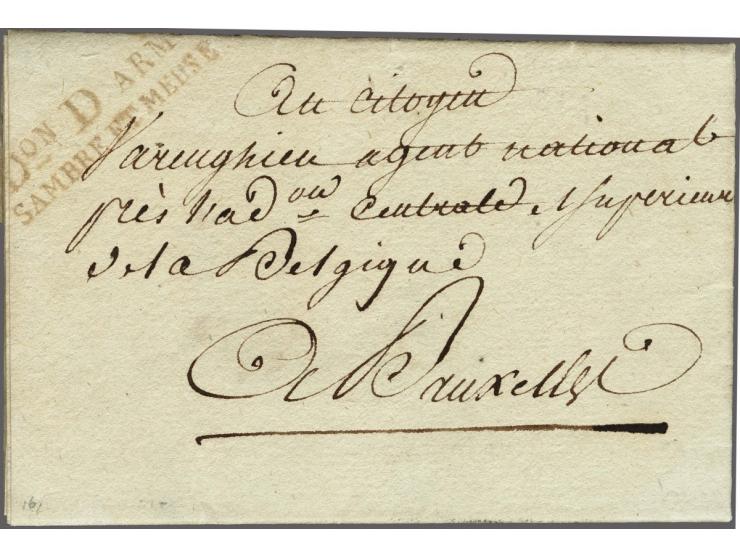 Don D ARM
SAMBRE ET MEUSE
Au citoyen
Varenghien agent national
près l'ad on centrale et superieure
de la Belgique
De Bruxelles
161